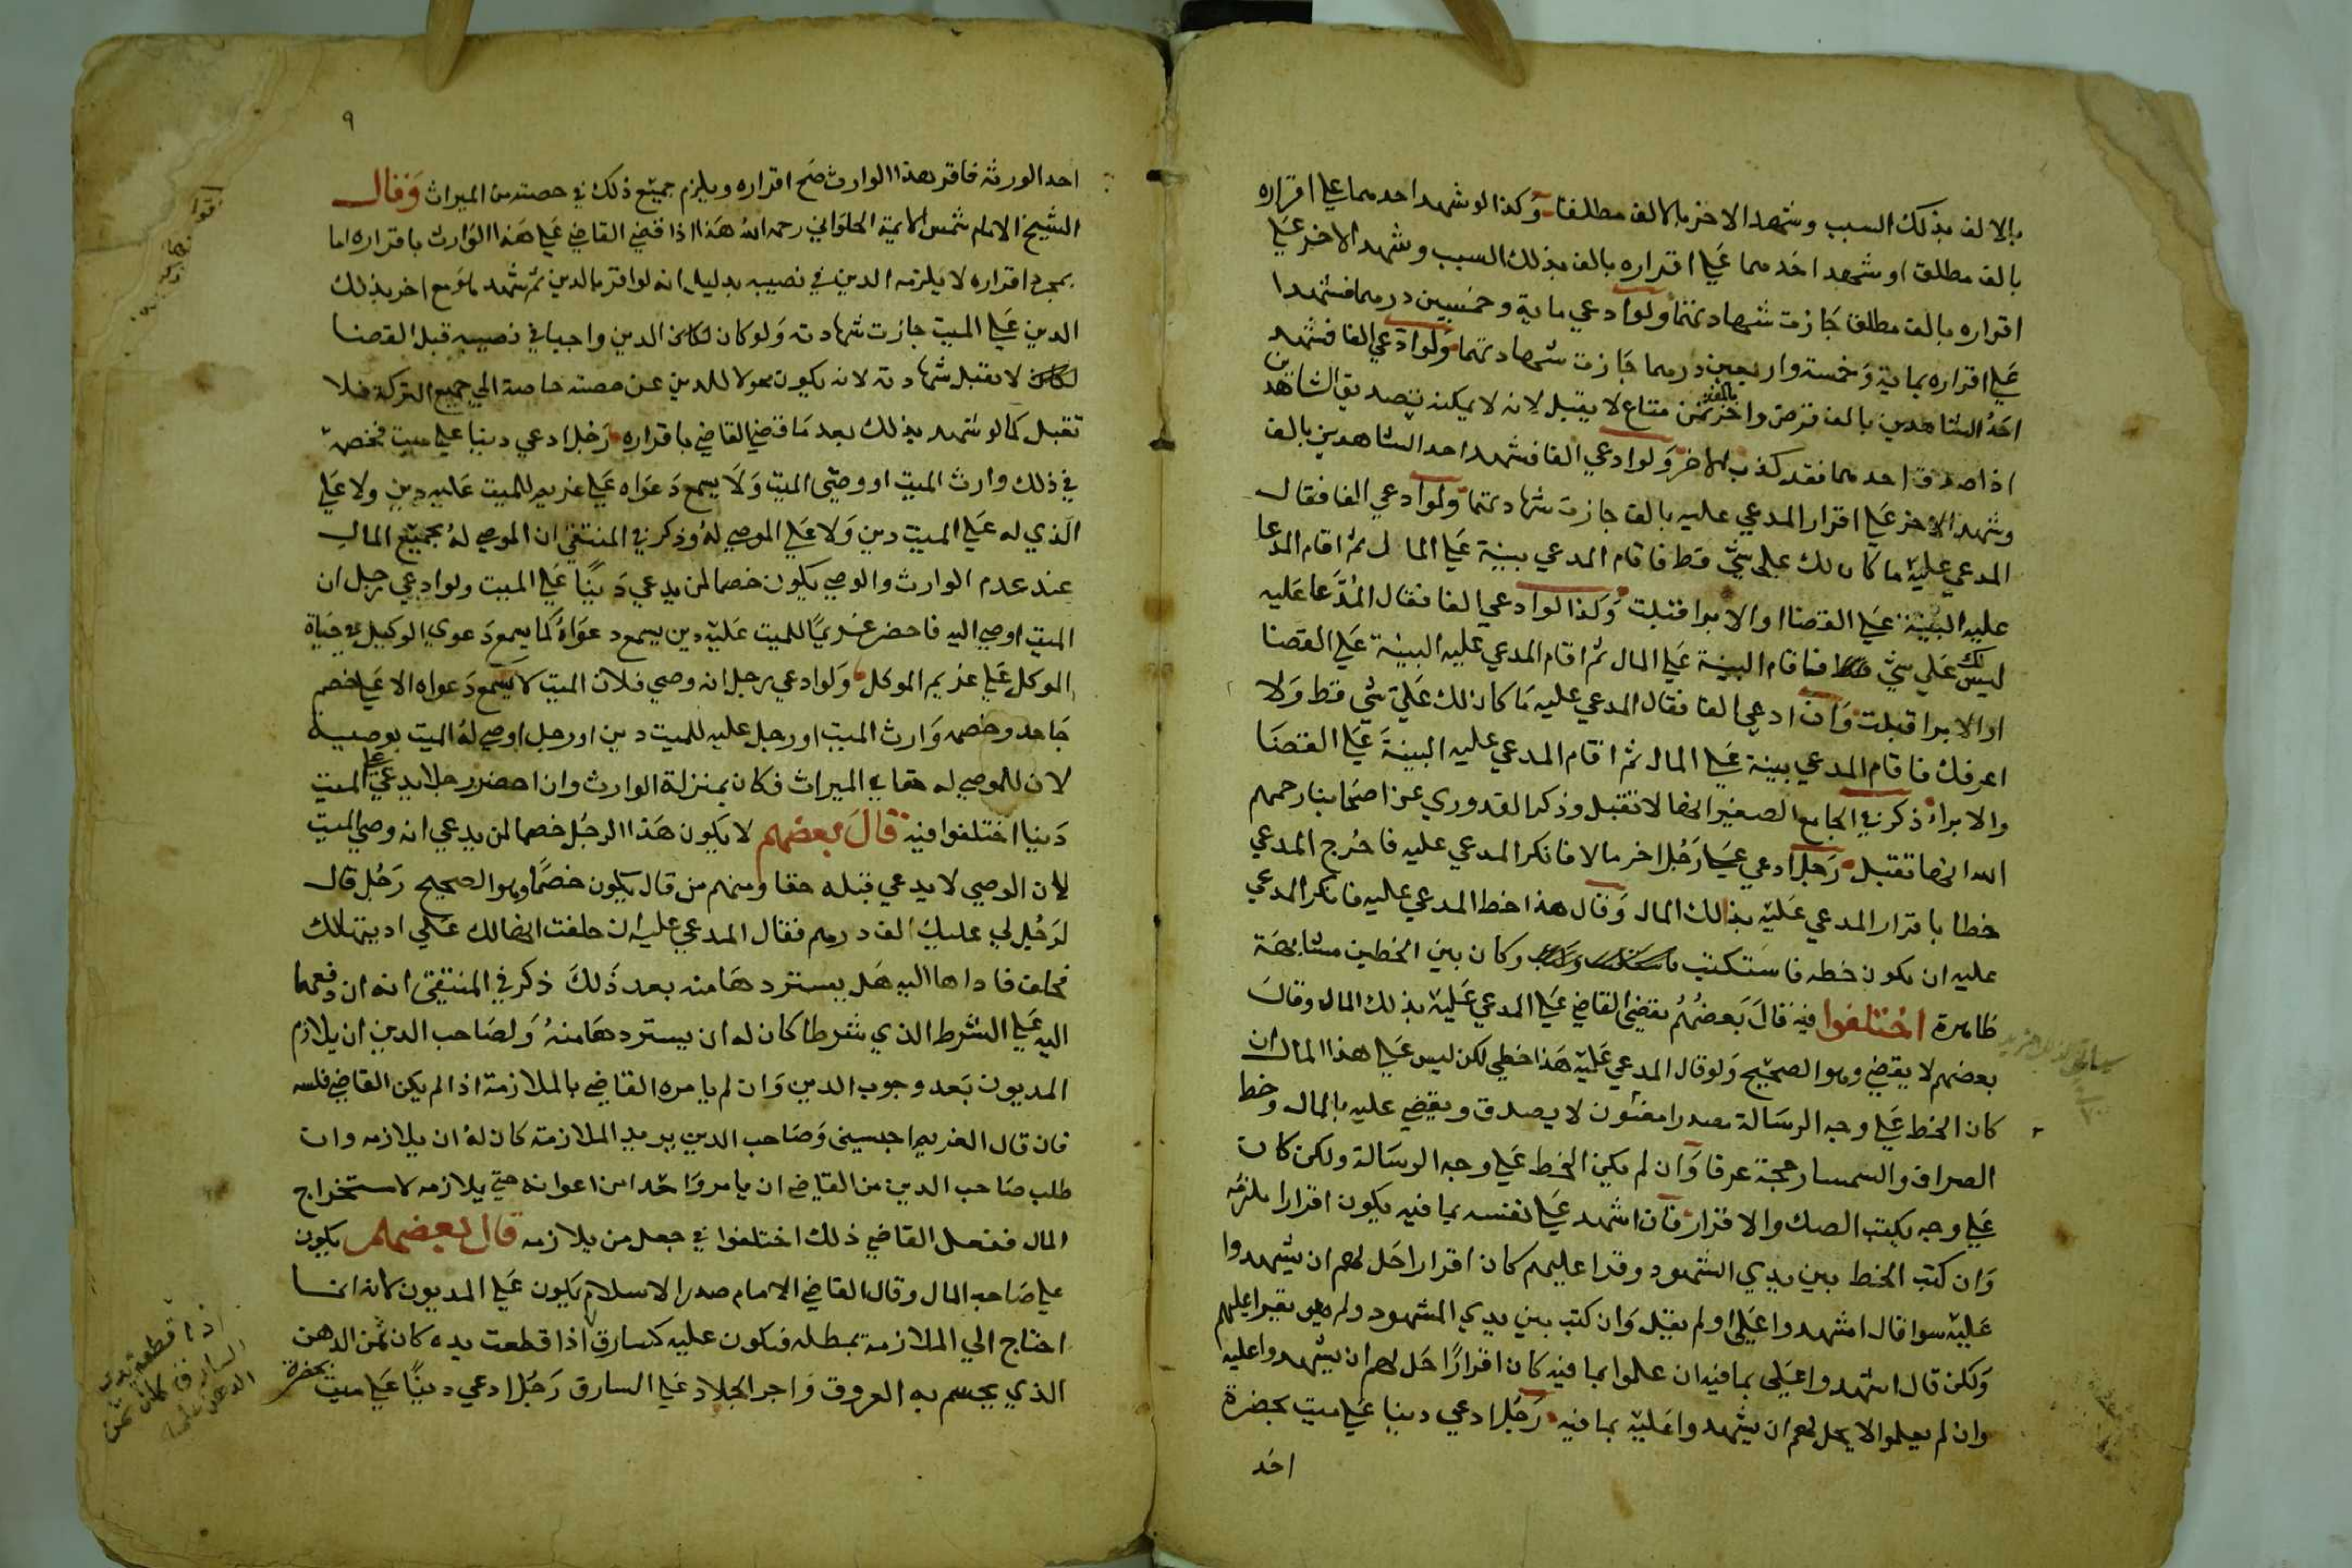 بالالف بذلك السبب وشهد الاخر بالالف مطلقا وكذا لو شهد احدهما على اقراره
بالف مطلق او شهد احدهما علي اقراره بالف بذلك السبب وشهد الاخر علي
اقراره بالف مطلق جازت شهادتهما ولو ادعي ماية وخمسين درهما فشهدا
علي اقراره بماية وخمسة واربعين درهما جازت شهادتهما ولو ادعي الفا فشهد
احد الشاهدين بالف قرض واخر بالف ثمن متاع لا يقبل لانه لا يمكنه تصديق الشاهدين
اذا صدق احدهما فقد كذب الاخر ولو ادعي الفا فشهد احد الشاهدين بالف
وشهد الاخر علي اقرار المدعي عليه بالف جازت شهادتهما ولو ادعي الفا فقال
المدعي عليه ما كان لك علي شي قط فاقام المدعي بينة علي المال ثم اقام المدعا
عليه البينة علي القضا او الابرا قبلت وكذا لو ادعي الفا فقال المدعا عليه
ليس لك علي شي فاقام البينة علي المال ثم اقام المدعي عليه البينة علي القضا
او الابرا قبلت وان ادعي الفا فقال المدعي عليه ما كان لك علي شي قط ولا
اعرفك فاقام المدعي بينة علي المال ثم اقام المدعي عليه البينة علي القضا
والابراء ذكر في الجامع الصغير انها لا تقبل وذكر القدوري عن اصحابنا رحمهم
الله انها تقبل رجل ادعي علي رجل اخر مالا فانكر المدعي عليه فاخرج المدعي
خطا باقرار المدعي عليه بذلك المال وقال هذا خط المدعي عليه فانكر المدعي
عليه ان يكون خطه فاستكتب وكان بين الخطين مشابهة
ظاهرة اختلفوا فيه قال بعضهم يقضي القاضي علي المدعي عليه بذلك المال وقال
بعضهم لا يقضي وهو الصحيح ولو قال المدعي عليه هذا خطي لكن ليس علي هذا المال ان
كان الخط علي وجه الرسالة مصدرا معنون لا يصدق ويقضي عليه بالمال وخط
الصراف والسمسار حجة عرفا وان لم يكن الخط علي وجه الرسالة ولكن كان
علي وجه يكتب الصك والاقرار فان اشهد علي نفسه بما فيه يكون اقرارا يلزمه
وان كتب الخط بين يدي الشهود وقرا عليهم كان اقرارا حل لهم ان يشهدوا
عليه سوا قال اشهدوا علي او لم يقل وان كتب بين يدي الشهود ولم يقرا عليهم
ولكن قال اشهدوا علي بما فيه ان علموا بما فيه كان اقرارا حل لهم ان يشهدوا عليه
وان لم يعلموا لا يحل لهم ان يشهدوا عليه بما فيه رجل ادعي دينا علي ميت بحضرة
احد
٩
احد الورثة فاقر هذا الوارث صح اقراره ويلزم جميع ذلك في حصته من الميراث وقال
الشيخ الامام شمس الايمة الحلواني رحمه الله هذا اذا قضي القاضي علي هذا الوارث باقراره اما
بمجرد اقراره لا يلزمه الدين في نصيبه بدليل انه لو اقر بالدين ثم شهد هو مع اخر بذلك
الدين علي الميت جازت شهادته ولو كان الدين واجبا في نصيبه قبل القضا
لا تقبل شهادته لانه يكون محولا للدين عن حصته خاصة الي جميع التركة فلا
تقبل كما لو شهد بذلك بعد ما قضي القاضي باقراره رجل ادعي دينا علي ميت فخصمه
في ذلك وارث الميت او وصي الميت ولا يسمع دعواه علي غريم للميت عليه دين ولا علي
الذي له علي الميت دين ولا علي الموصي له وذكر في المنتقي ان الموصي له بجميع المال
عند عدم الوارث والوصي يكون خصما لمن يدعي دينا علي الميت ولو ادعي رجل ان
الميت اوصي اليه فاحضر غريما للميت عليه دين يسمع دعواه كما يسمع دعوي الوكيل في حياة
الموكل علي غريم الموكل ولو ادعي رجل انه وصي فلان الميت لا يسمع دعواه الا علي خصم
جاحد وخصمه وارث الميت او رجل عليه للميت دين او رجل اوصي له الميت بوصية
لان للموصي له حقا في الميراث فكان بمنزلة الوارث وان احضر رجلا يدعي علي الميت
دينا اختلفوا فيه قال بعضهم لا يكون هذا الرجل خصما لمن يدعي انه وصي الميت
لان الوصي لا يدعي قبله حقا ومنهم من قال يكون خصما وهو الصحيح رجل قال
لرجل لي عليك الف درهم فقال المدعي عليه ان حلفت انها لك علي اديتها لك
فحلف فاداها اليه هل يستردها منه بعد ذلك ذكر في المنتقي انه ان دفعها
اليه علي الشرط الذي شرطا كان له ان يستردها منه ولصاحب الدين ان يلازم
المديون بعد وجوب الدين وان لم يامره القاضي بالملازمة اذا لم يكن القاضي فلسه
فان قال الغريم احبسني وصاحب الدين يريد الملازمة كان له ان يلازمه وان
طلب صاحب الدين من القاضي ان يامر واحدا من اعوانه حتي يلازمه لاستخراج
المال ففعل القاضي ذلك اختلفوا في جعل من يلازمه قال بعضهم يكون
علي صاحب المال وقال القاضي الامام صدر الاسلام يكون علي المديون لانه انما
احتاج الي الملازمة بمطله فيكون عليه كسارق اذا قطعت يده كان ثمن الدهن
الذي يحسم به العروق واجر الجلاد علي السارق رجل ادعي دينا علي ميت بحضرة
اذا قطعت يد
السارق كان ثمن
الدهن عليه